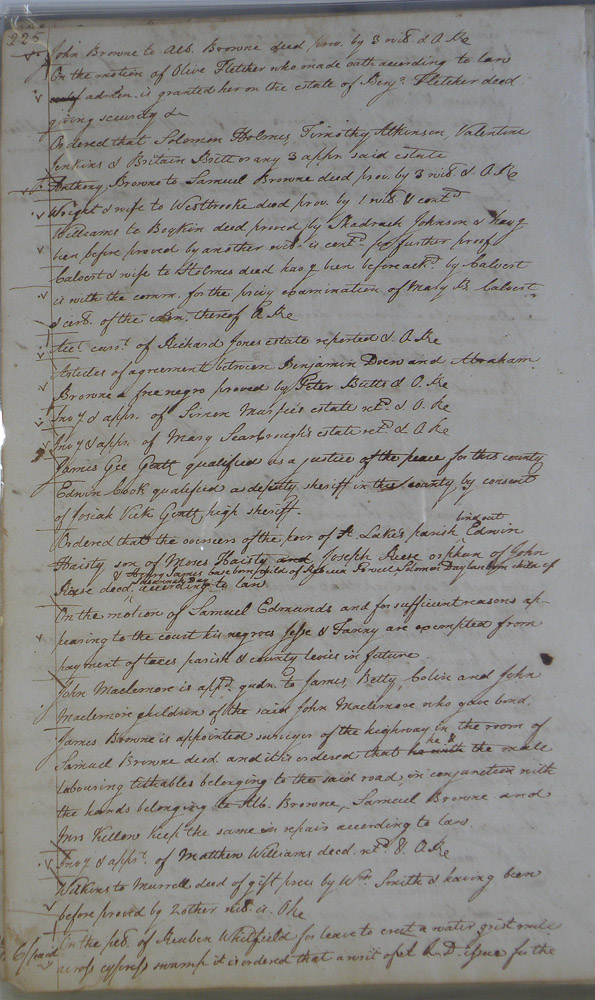 225
John Browne to Alb. Browne deed prov. by 3 wits. & O. Re
On the motion of Olive Fletcher who made oath according to law
admn. is granted her on the estate of Benja. Fletcher deed
giving security &c
Ordered that Solomon Holmes, Timothy Atkinson, Valentine
Jenkins & Britain Britt or any 3 appr. said estate
Anthony Browne to Samuel Browne deed prov. by 3 wits & O. Re
Wright & wife to Westbrooke deed prov. by 1 wits. & contd.
Williams to Boykin deed proved by Shadrach Johnson & havg.
been before proved by another wits. is contd. for further proof
Calvert & wife to Holmes deed havg. been before ackd. by Calvert
is with the comm. for the privy examination of Mary B. Calvert
& cert. of the exn. thereof O. Re
Acct. curr. of Richard Jones estate reported & O. Re
Articles of agreement between Benjamin Doen and Abraham
Browne a free negro proved by Peter Butts & O. Re
Invy. & appr. of Simon Murfee's estate retd. & O. Re
Invy & appr. of Mary Scarbrough's estate retd. & O. Re
James Gee Gentl. qualified as a justice of the peace for this county
Edwin Cook qualified as deputy sheriff in this county, by consent
of Josiah Vick Gentl. high sheriff.
Ordered that the overseers of the poor of St. Luke's parish bind out Edwin
Haisty son of Moses Haisty and Joseph Reese orphan of John
& Henry James base born child of Rebecca Powell, Solomon Day base born child of
Reese deed. Day according to law
On the motion of Samuel Edmunds and for sufficient reasons ap-
pearing to the court his negroes Jesse & Fanny are exempted from
payment of taxes parish & county levies in future
John Maclemore is appd. gudn. to James, Betty, Colin and John
Maclemore children of the said John Maclemore who gave bond.
James Browne is appointed surveyor of the highway in the room of
Samuel Browne deed. and it is ordered that he & the male
labouring tithables belonging to the said road, in conjunction with
the hands belonging to Alb. Browne, Samuel Browne and
Mrs Killow keep the same in repair according to law.
Invy & appr. of Matthew Williams deed retd. & O. Re
Wilkins to Murrell deed of gift prov. by Wm. Smith & having been
before proved by 2 other wits is O. Re
On the pet. of Reuben Whitfield for leave to erect a water grist mill
across cypress swamp it is ordered that a writ of et A. D. issue for the